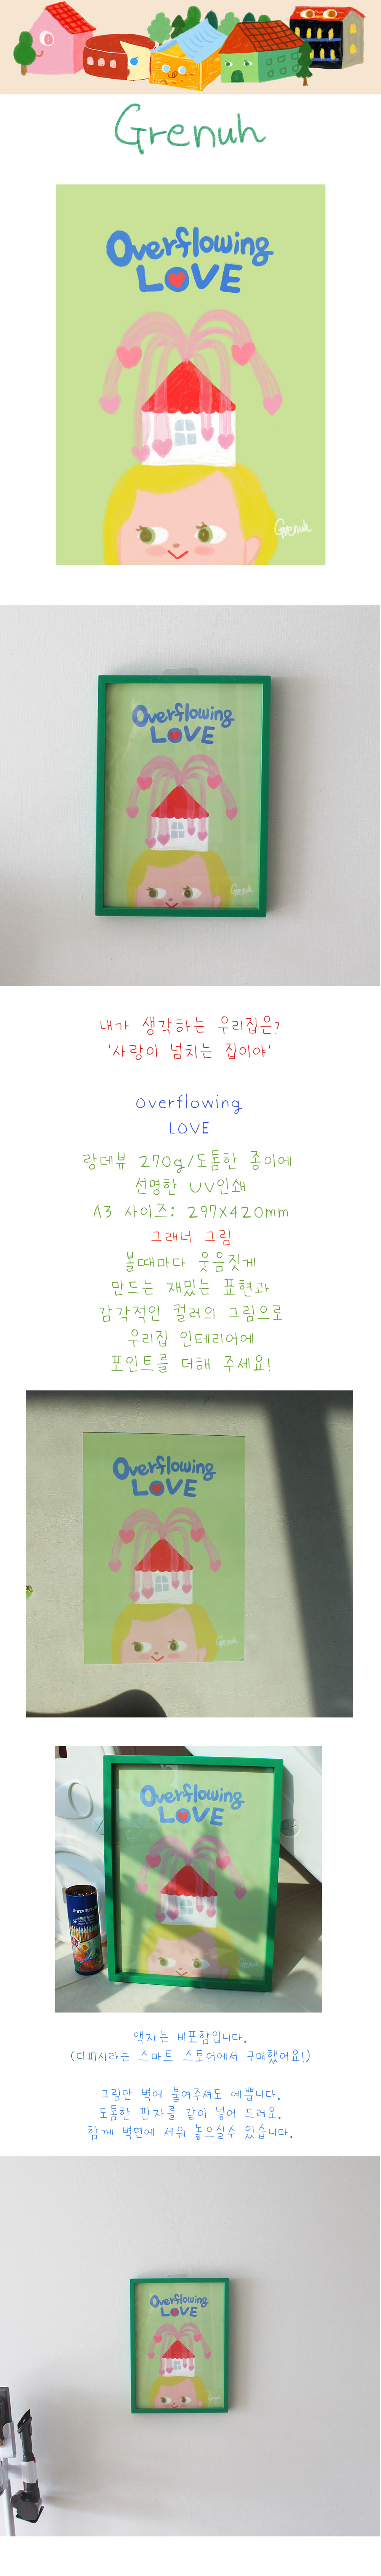 Grenuh
Overflowing
LOVE
Grenuh
Overflowing
LOVE
Grenuh
내가 생각하는 우리집은?
'사랑이 넘치는 집이야'
Overflowing
LOVE
랑데뷰 270g/도톰한 종이에
선명한 UV인쇄
A3 사이즈: 297x420mm
그래너 그림
볼때마다 웃음짓게
만드는 재밌는 표현과
감각적인 컬러의 그림으로
우리집 인테리어에
포인트를 더해 주세요!
Overflowing
LOVE
Grenuh
Overflowing
LOVE
STAEDTLER
액자는 비포함입니다.
(디피시라는 스마트 스토어에서 구매했어요!)
그림만 벽에 붙여주셔도 예쁩니다.
도톰한 판자를 같이 넣어 드려요.
함께 벽면에 세워 놓으실수 있습니다.
Overflowing
LOVE